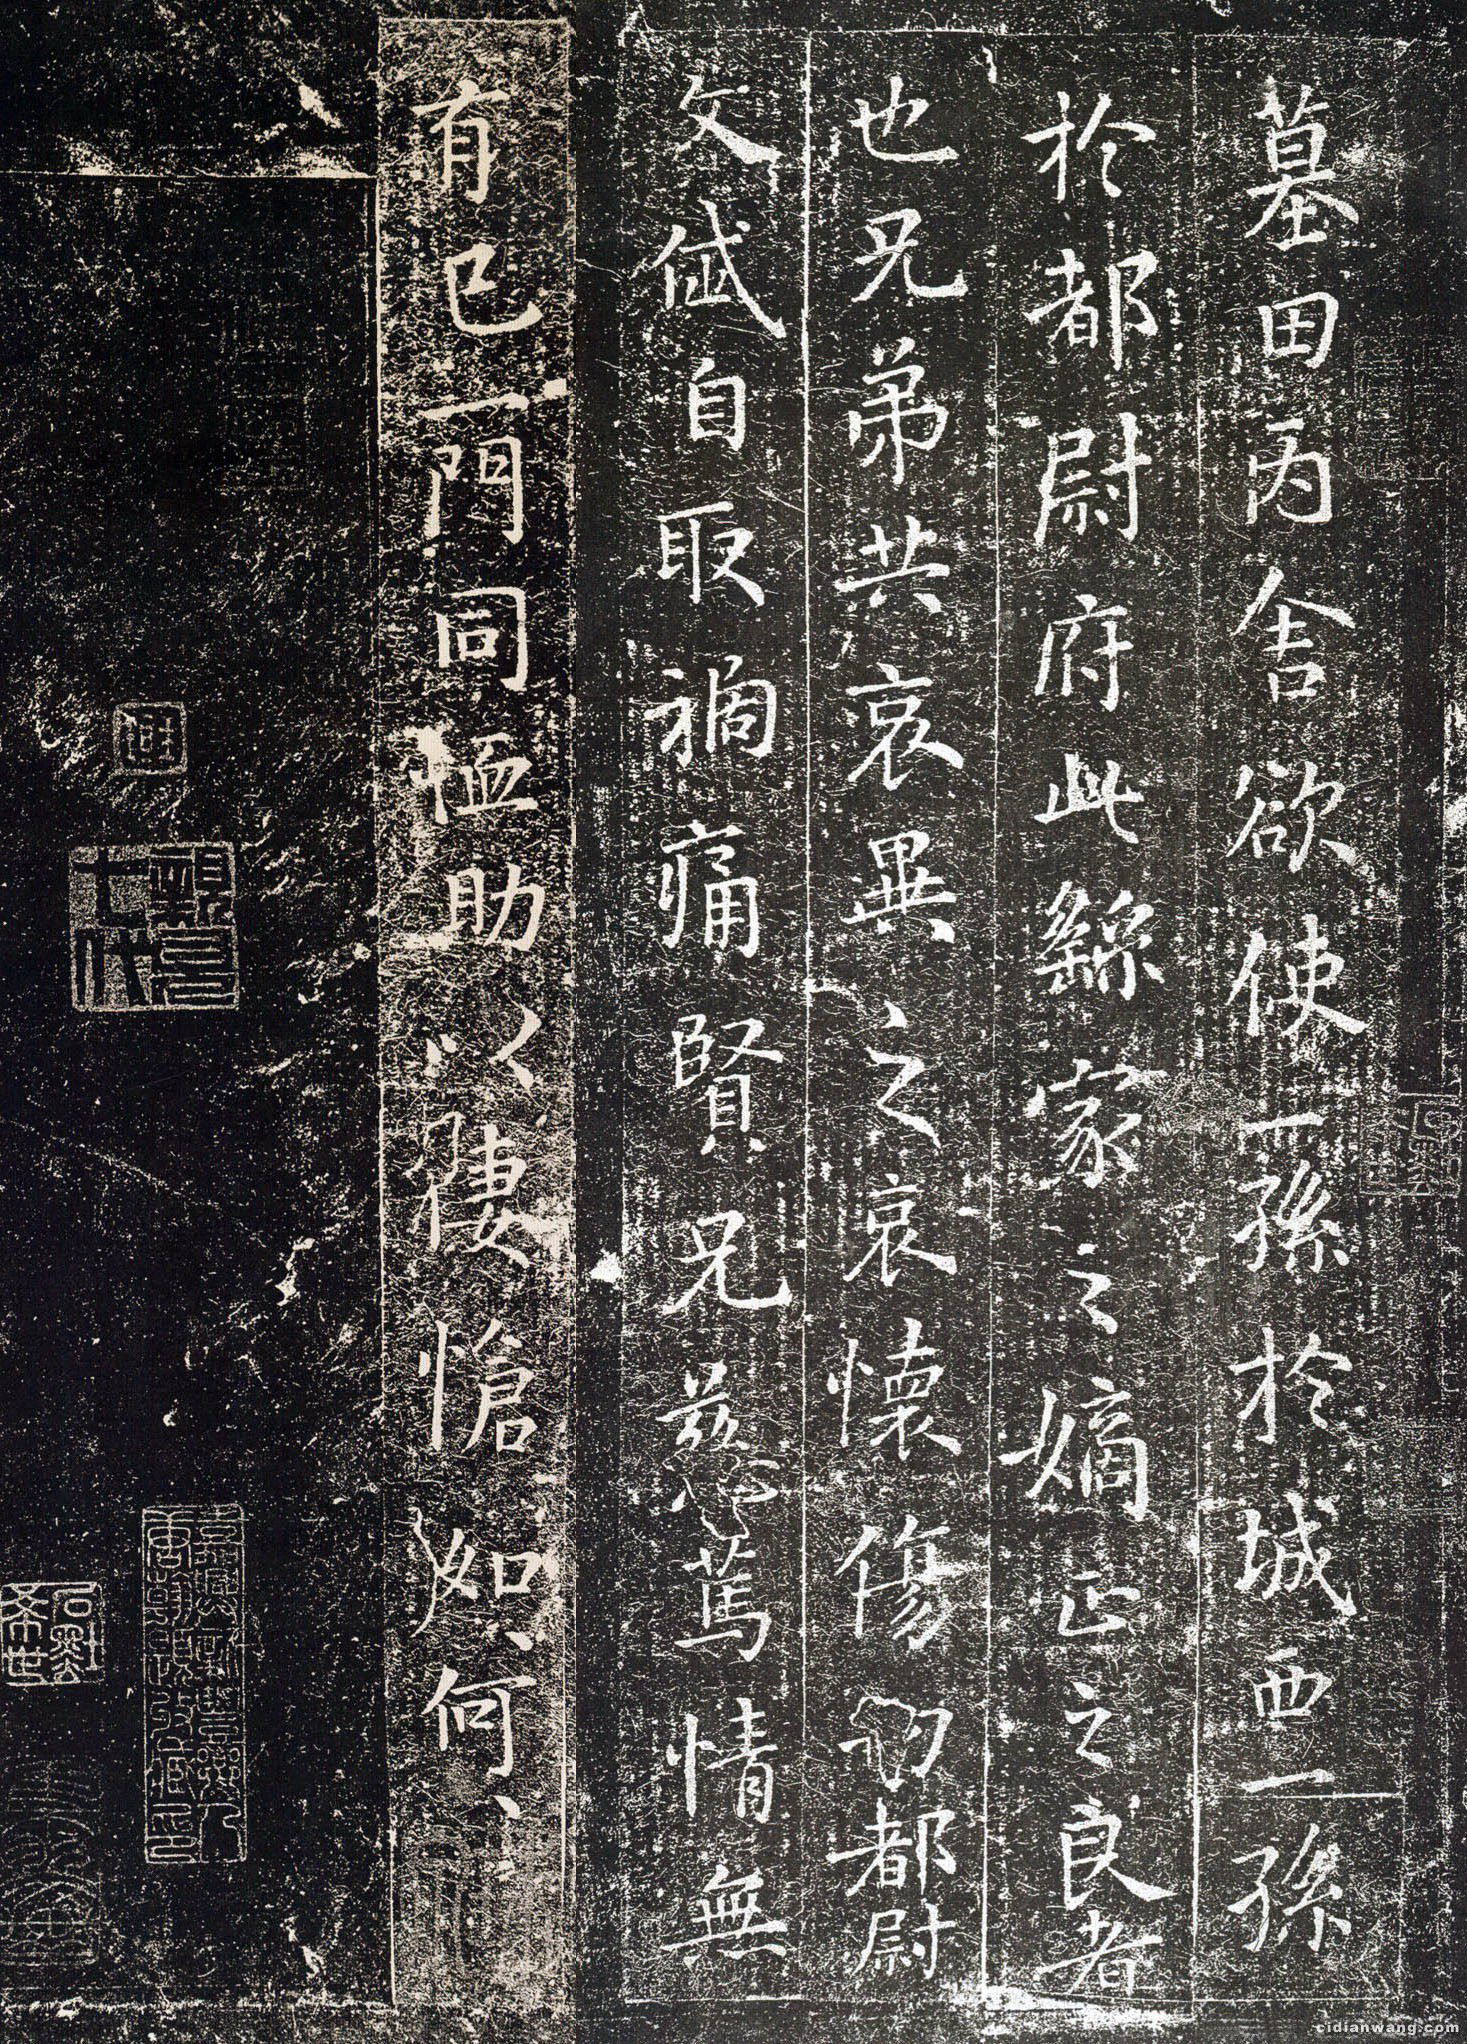 墓田丙舍欲使一孫於城西一孫
於都尉府此繇家之嫡正之良者
也兄弟共哀異之哀懷傷切都尉
文岱自取禍痛賢兄慈篤情無
有已一門同恤助以悽愴如〻何〻
cidianwang.com